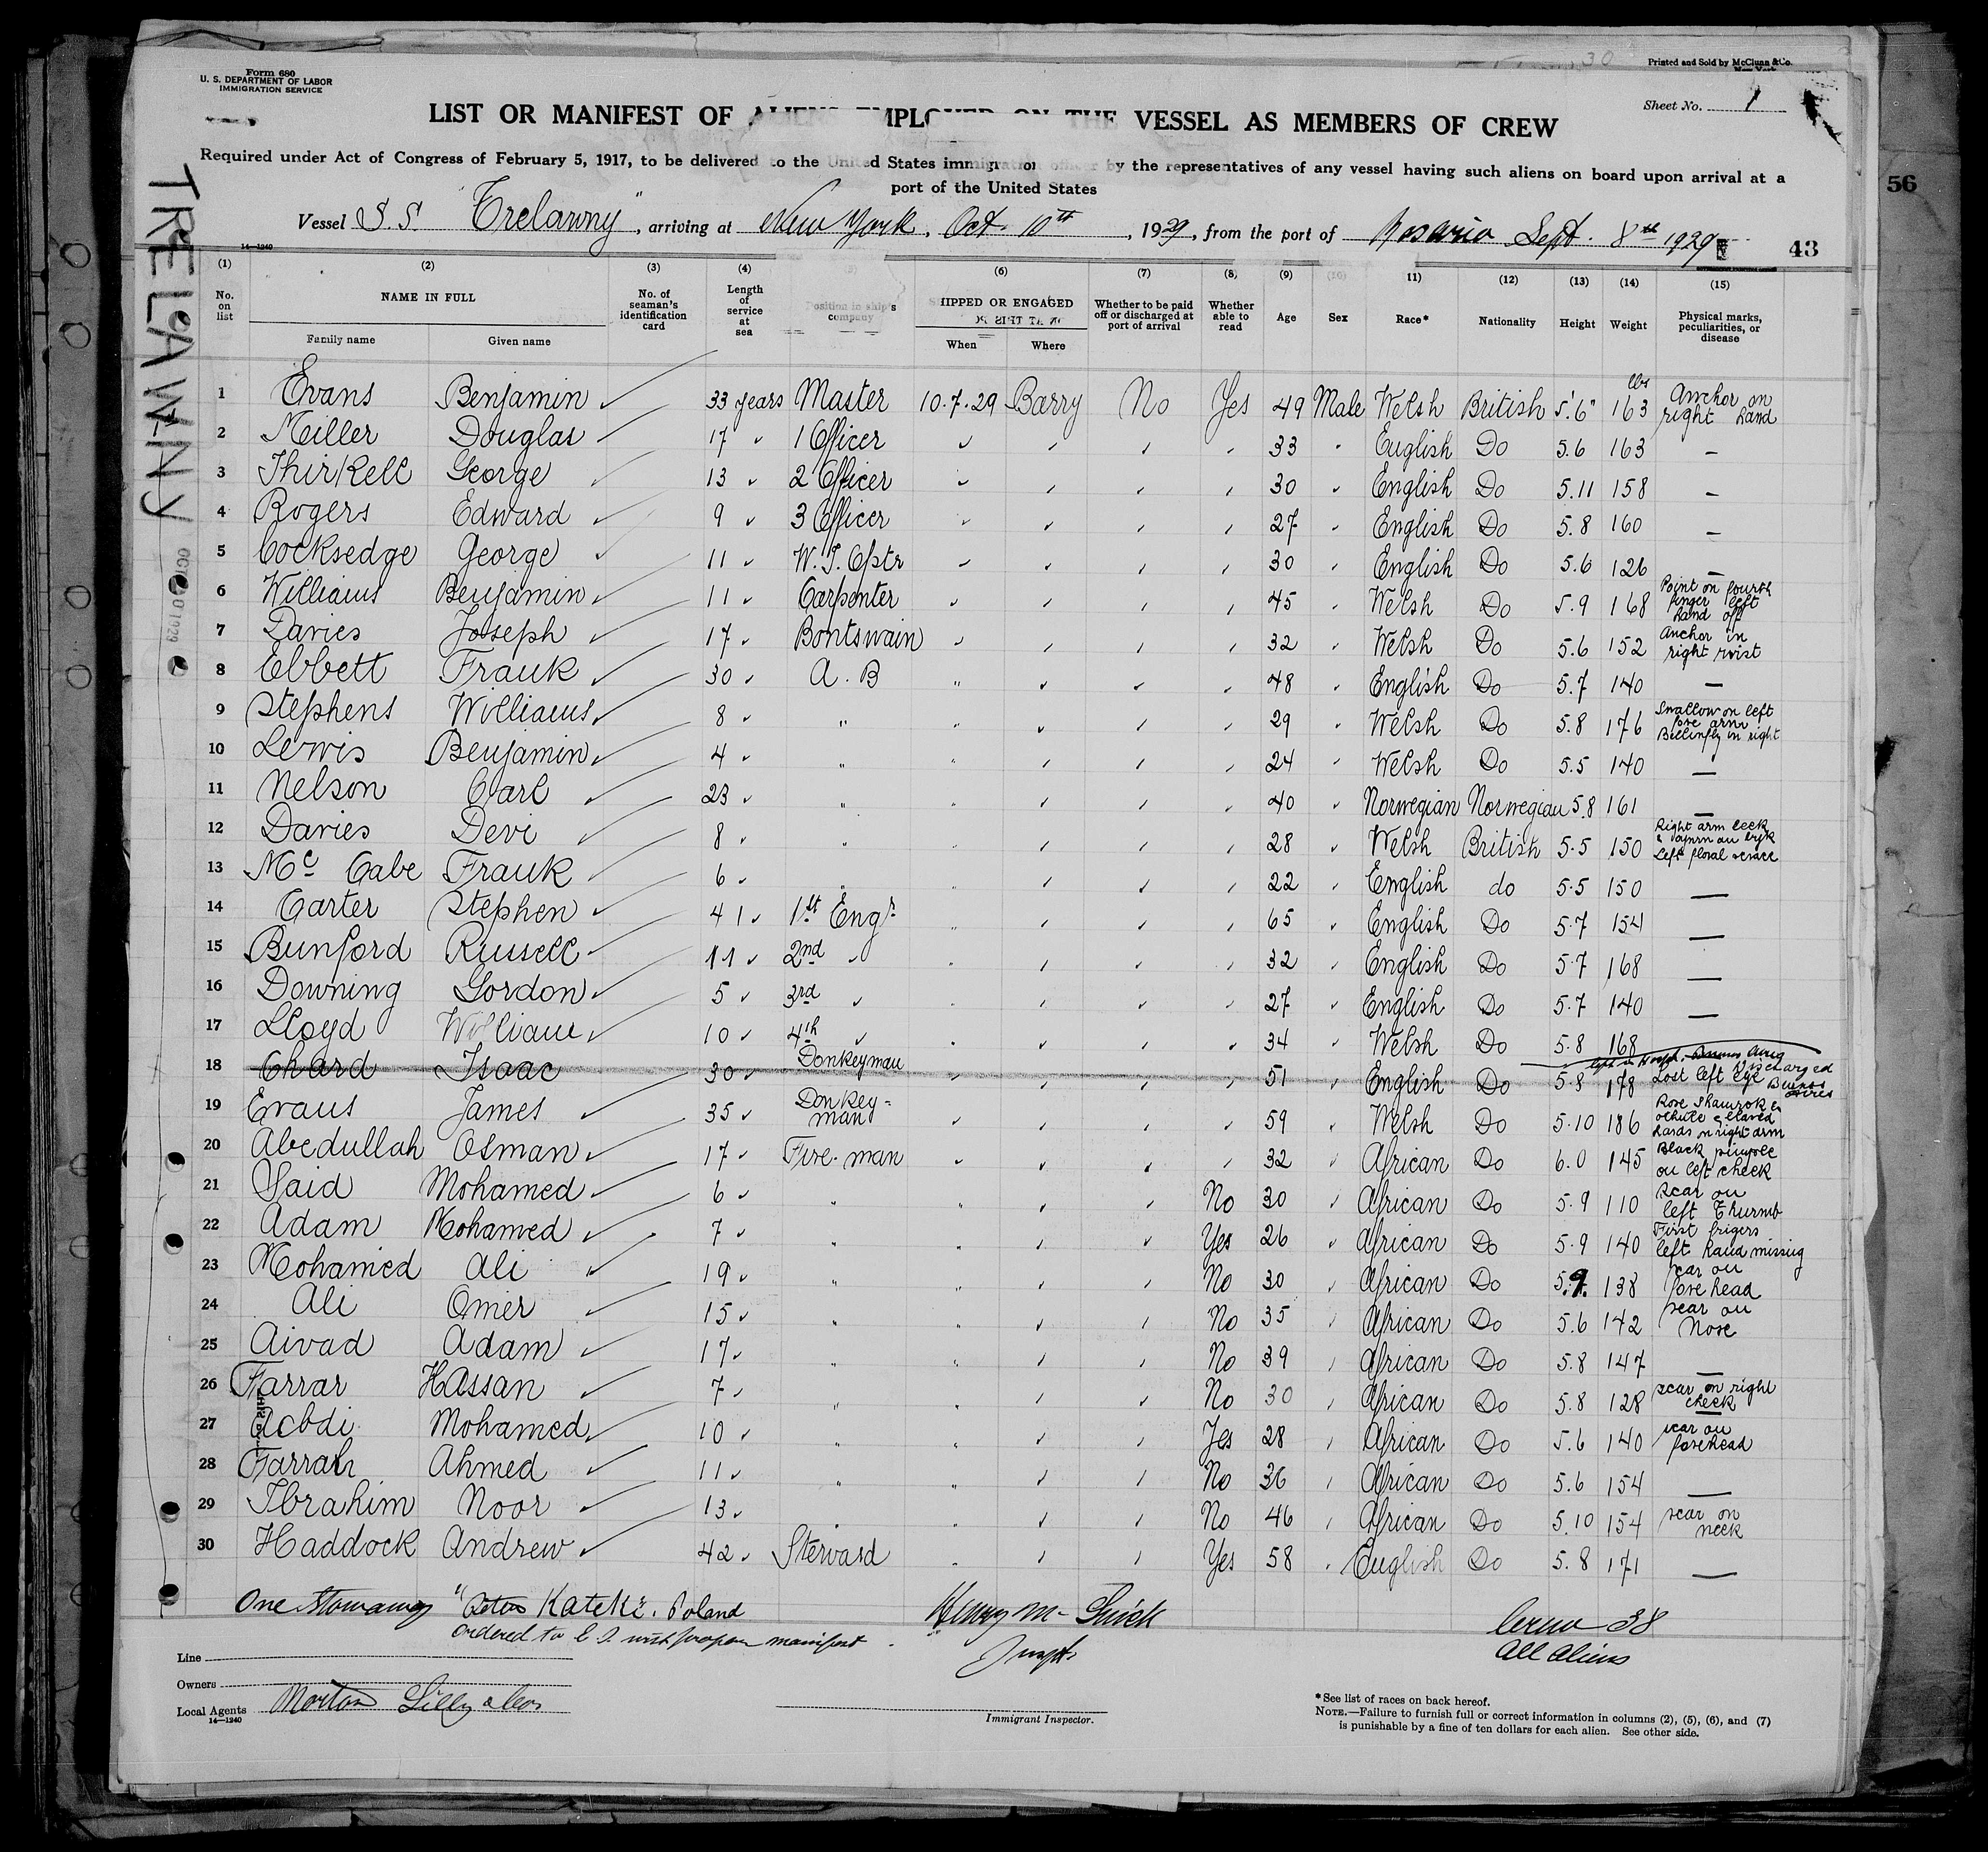 Form 680
U. S. DEPARTMENT OF LABOR
IMMIGRATION SERVICE
Printed and Sold by McClunn & Co.
New York
Sheet No. 1
LIST OR MANIFEST OF ALIENS EMPLOYED ON THE VESSEL AS MEMBERS OF CREW
Required under Act of Congress of February 5, 1917, to be delivered to the United States immigration officer by the representatives of any vessel having such aliens on board upon arrival at a
port of the United States
56
TRELAWNY
Vessel S.S. "Trelawny", arriving at New York, Oct. 10th, 1929, from the port of Rosario Sept. 8th 1929
14-1240
43
(1) (2) (3) (4) (5) (6) (7) (8) (9) (10) (11) (12) (13) (14) (15)
No. on list NAME IN FULL Family name Given name No. of seaman's identification card Length of service at sea Position in ship's company SHIPPED OR ENGAGED When Where Whether to be paid off or discharged at port of arrival Whether able to read Age Sex Race* Nationality Height Weight Physical marks, peculiarities, or disease
1 Evans Benjamin 33 years Master 10.7.29 Barry No Yes 49 Male Welsh British 5'6" 163 lbs Anchor on right hand
2 Miller Douglas 17 1 Officer 33 English Do 5.6 163 —
3 Thirkell George 13 2 Officer 30 English Do 5.11 158 —
4 Rogers Edward 9 3 Officer 27 English Do 5.8 160 —
5 Cocksedge George 11 W.T. Optr 30 English Do 5.6 126 —
6 Williams Benjamin 11 Carpenter 45 Welsh Do 5.9 168 Point on fourth finger left hand off
7 Davies Joseph 17 Bontswain 32 Welsh Do 5.6 152 Anchor in right wist
8 Ebbett Frank 30 A.B 48 English Do 5.7 140 —
9 Stephens Williams 8 " 29 Welsh Do 5.8 176 Swallow on left fore arm in right
10 Lewis Benjamin 4 " 24 Welsh Do 5.5 140 —
11 Nelson Carl 23 " 40 Norwegian Norwegian 5.8 161 —
12 Davies Devi 8 " 28 Welsh British 5.5 150 Right arm Left floral
13 Mc Cabe Frank 6 " 22 English do 5.5 150 —
14 Carter Stephen 41 1st Engr 65 English Do 5.7 154 —
15 Bunford Russell 11 2nd " 32 English Do 5.7 168 —
16 Downing Gordon 5 3rd " 27 English Do 5.7 140 —
17 Lloyd William 10 4th " 34 Welsh Do 5.8 168
18 Chard Isaac 30 Donkeyman 51 English Do 5.8 178 Lost left Eye Discharged Buenos Aires
19 Evans James 35 Donkey-man 59 Welsh Do 5.10 186 Rose Shamrok on right arm
20 Abedullah Osman 17 Fire-man 32 African Do 6.0 145 Black pimple on left cheek
21 Said Mohamed 6 " No 30 African Do 5.9 110 scar on left Thurmb
22 Adam Mohamed 7 " Yes 26 African Do 5.9 140 First frigers left hand missing
23 Mohamed Ali 19 " No 30 African Do 5.9 138 scar on fore head
24 Ali Omer 15 " No 35 African Do 5.6 142 scar on Nose
25 Aivad Adam 17 " No 39 African Do 5.8 147 —
26 Farrar Hassan 7 " No 30 African Do 5.8 128 scar on right cheek
27 Acbdi Mohamed 10 " Yes 28 African Do 5.6 140 scar on forehead
28 Farrah Ahmed 11 " No 36 African Do 5.6 154 —
29 Ibrahim Noor 13 " No 46 African Do 5.10 154 scar on neck
30 Haddock Andrew 42 Steward Yes 58 English Do 5.8 171 —
One Stowaway "Peter Kateki". Poland
ordered to E. I. with proper manifest
Henry M.
Insptr
Crew 38
All Aliens
Line
Owners
Local Agents Morton Lilly & Co.
14-1240
Immigrant Inspector.
*See list of races on back hereof.
NOTE.—Failure to furnish full or correct information in columns (2), (5), (6), and (7)
is punishable by a fine of ten dollars for each alien. See other side.